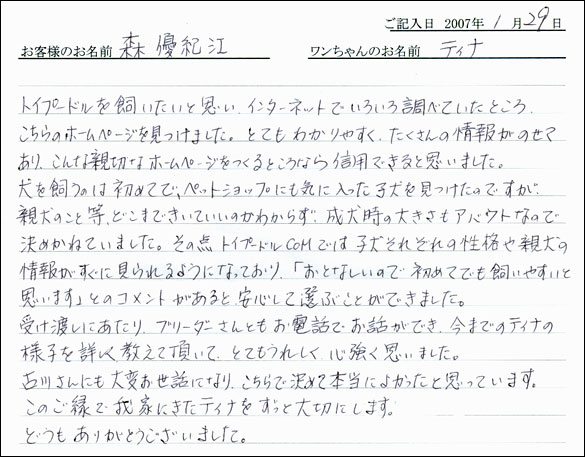 ご記入日 2007年 1月29日
お客様のお名前 森 優紀江 ワンちゃんのお名前 ティナ
トイプードルを飼いたいと思い、インターネットでいろいろ調べていたところ、
こちらのホームページを見つけました。とてもわかりやすく、たくさんの情報がのせて
あり、こんな親切なホームページをつくるところなら信用できると思いました。
犬を飼うのは初めてで、ペットショップにも気に入った子犬を見つけたのですが、
親犬のこと等、どこまできいていいのかわからず、成犬時の大きさもアバウトなので
決めかねていました。その点トイプードルCOMでは子犬それぞれの性格や親犬の
情報がすぐに見られるようになっており、「おとなしいので初めてでも飼いやすいと
思います」とのコメントがあると、安心して選ぶことができました。
受け渡しにあたり、ブリーダーさんともお電話でお話ができ、今までのティナの
様子を詳しく教えて頂いて、とてもうれしく、心強く思いました。
古川さんにも大変お世話になり、こちらで決めて本当によかったと思っています。
このご縁で我家にきたティナをずっと大切にします。
どうもありがとうございました。